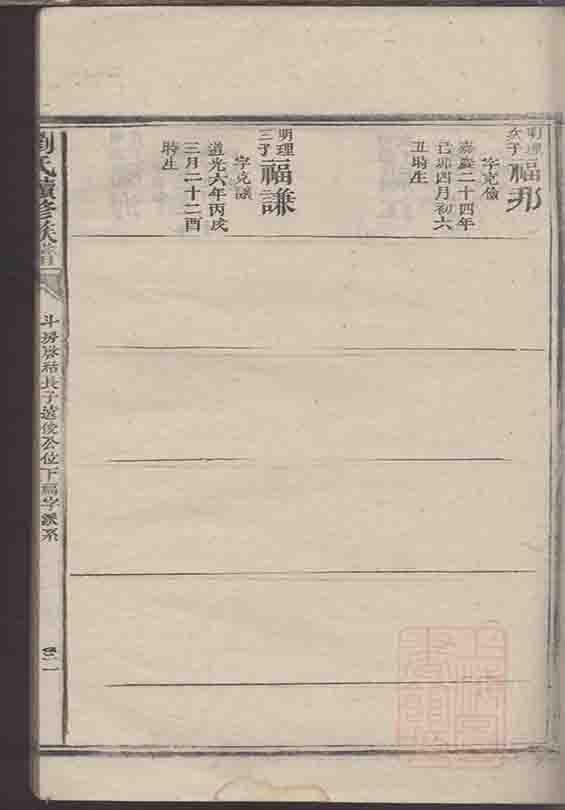 明理
次子
福邦
字克儉
嘉慶二十四年
己卯四月初六
丑時生
明理
三子
福謙
字克讓
道光六年丙戌
三月二十二酉
時生
劉氏續修族譜
斗房啓祜長子遠俊公位下福字派系